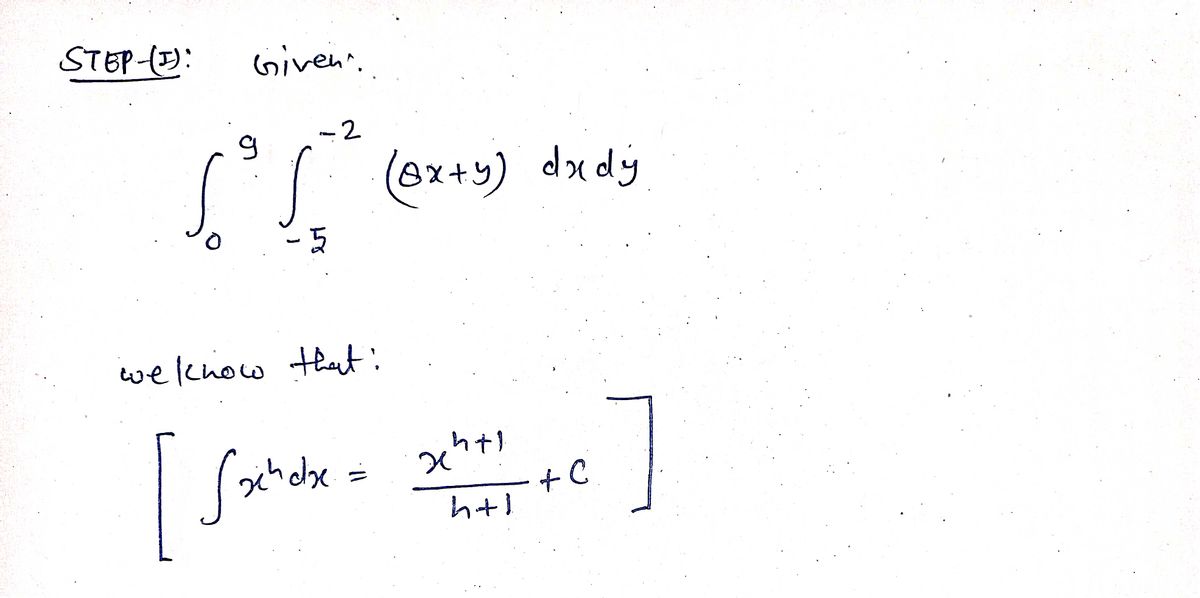 STEP-(I): Given:
∫₀⁹ ∫₋₅⁻² (8x+y) dx dy
we know that:
[ ∫xⁿdx = xⁿ⁺¹/n+1 + C ]